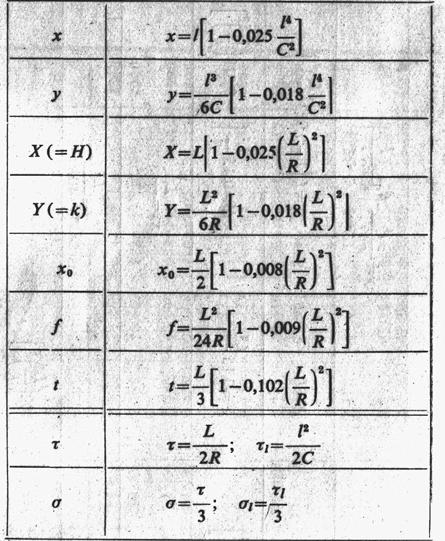 x x=l[1−0,025 l⁴/C²]
y y=l³/6C[1−0,018 l⁴/C²]
X(=H) X=L[1−0,025(L/R)²]
Y(=k) Y=L²/6R[1−0,018(L/R)²]
x₀ x₀=L/2[1−0,008(L/R)²]
f f=L²/24R[1−0,009(L/R)²]
t t=L/3[1−0,102(L/R)²]
τ τ=L/2R; τₗ=l²/2C
σ σ=τ/3; σₗ=τₗ/3